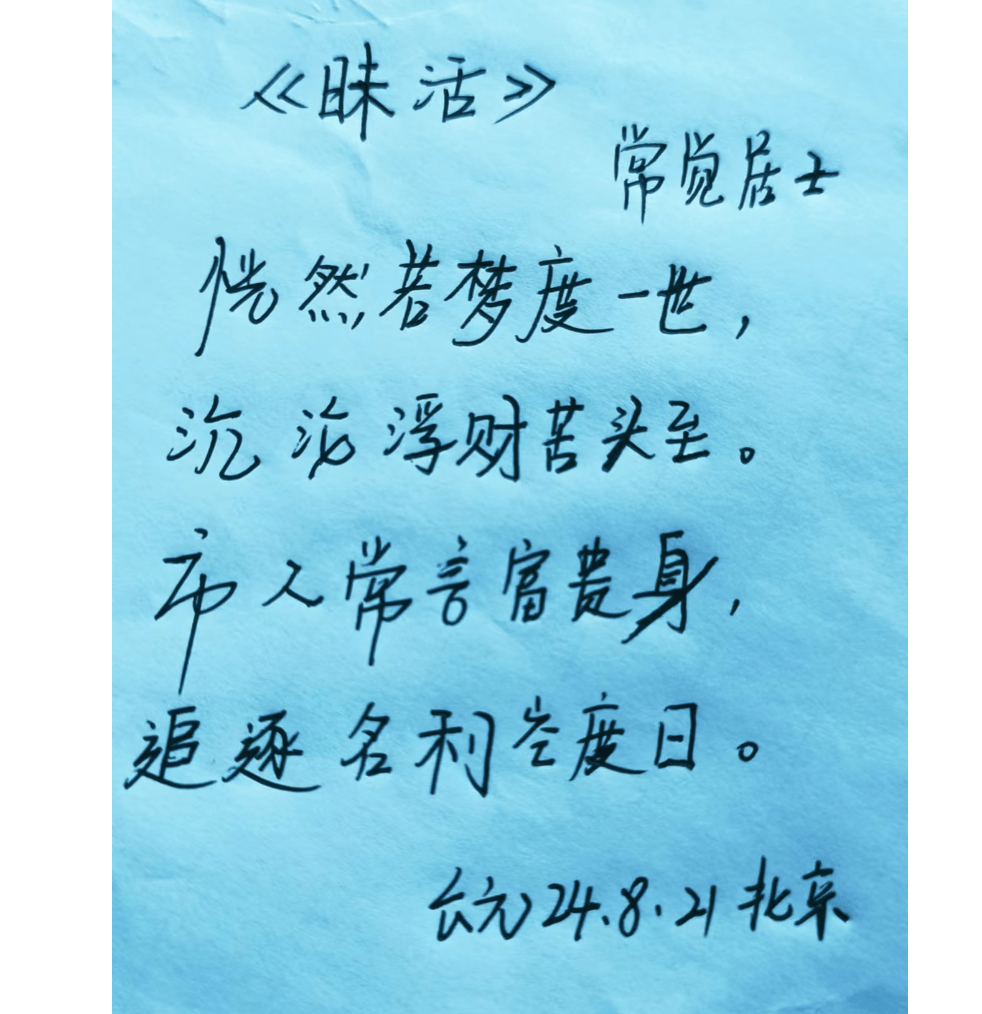 《昧活》
常觉居士
恍然若梦度一世，
沉沦浮财苦头至。
市人常言富贵身，
追逐名利空度日。
公元24.8.21北京